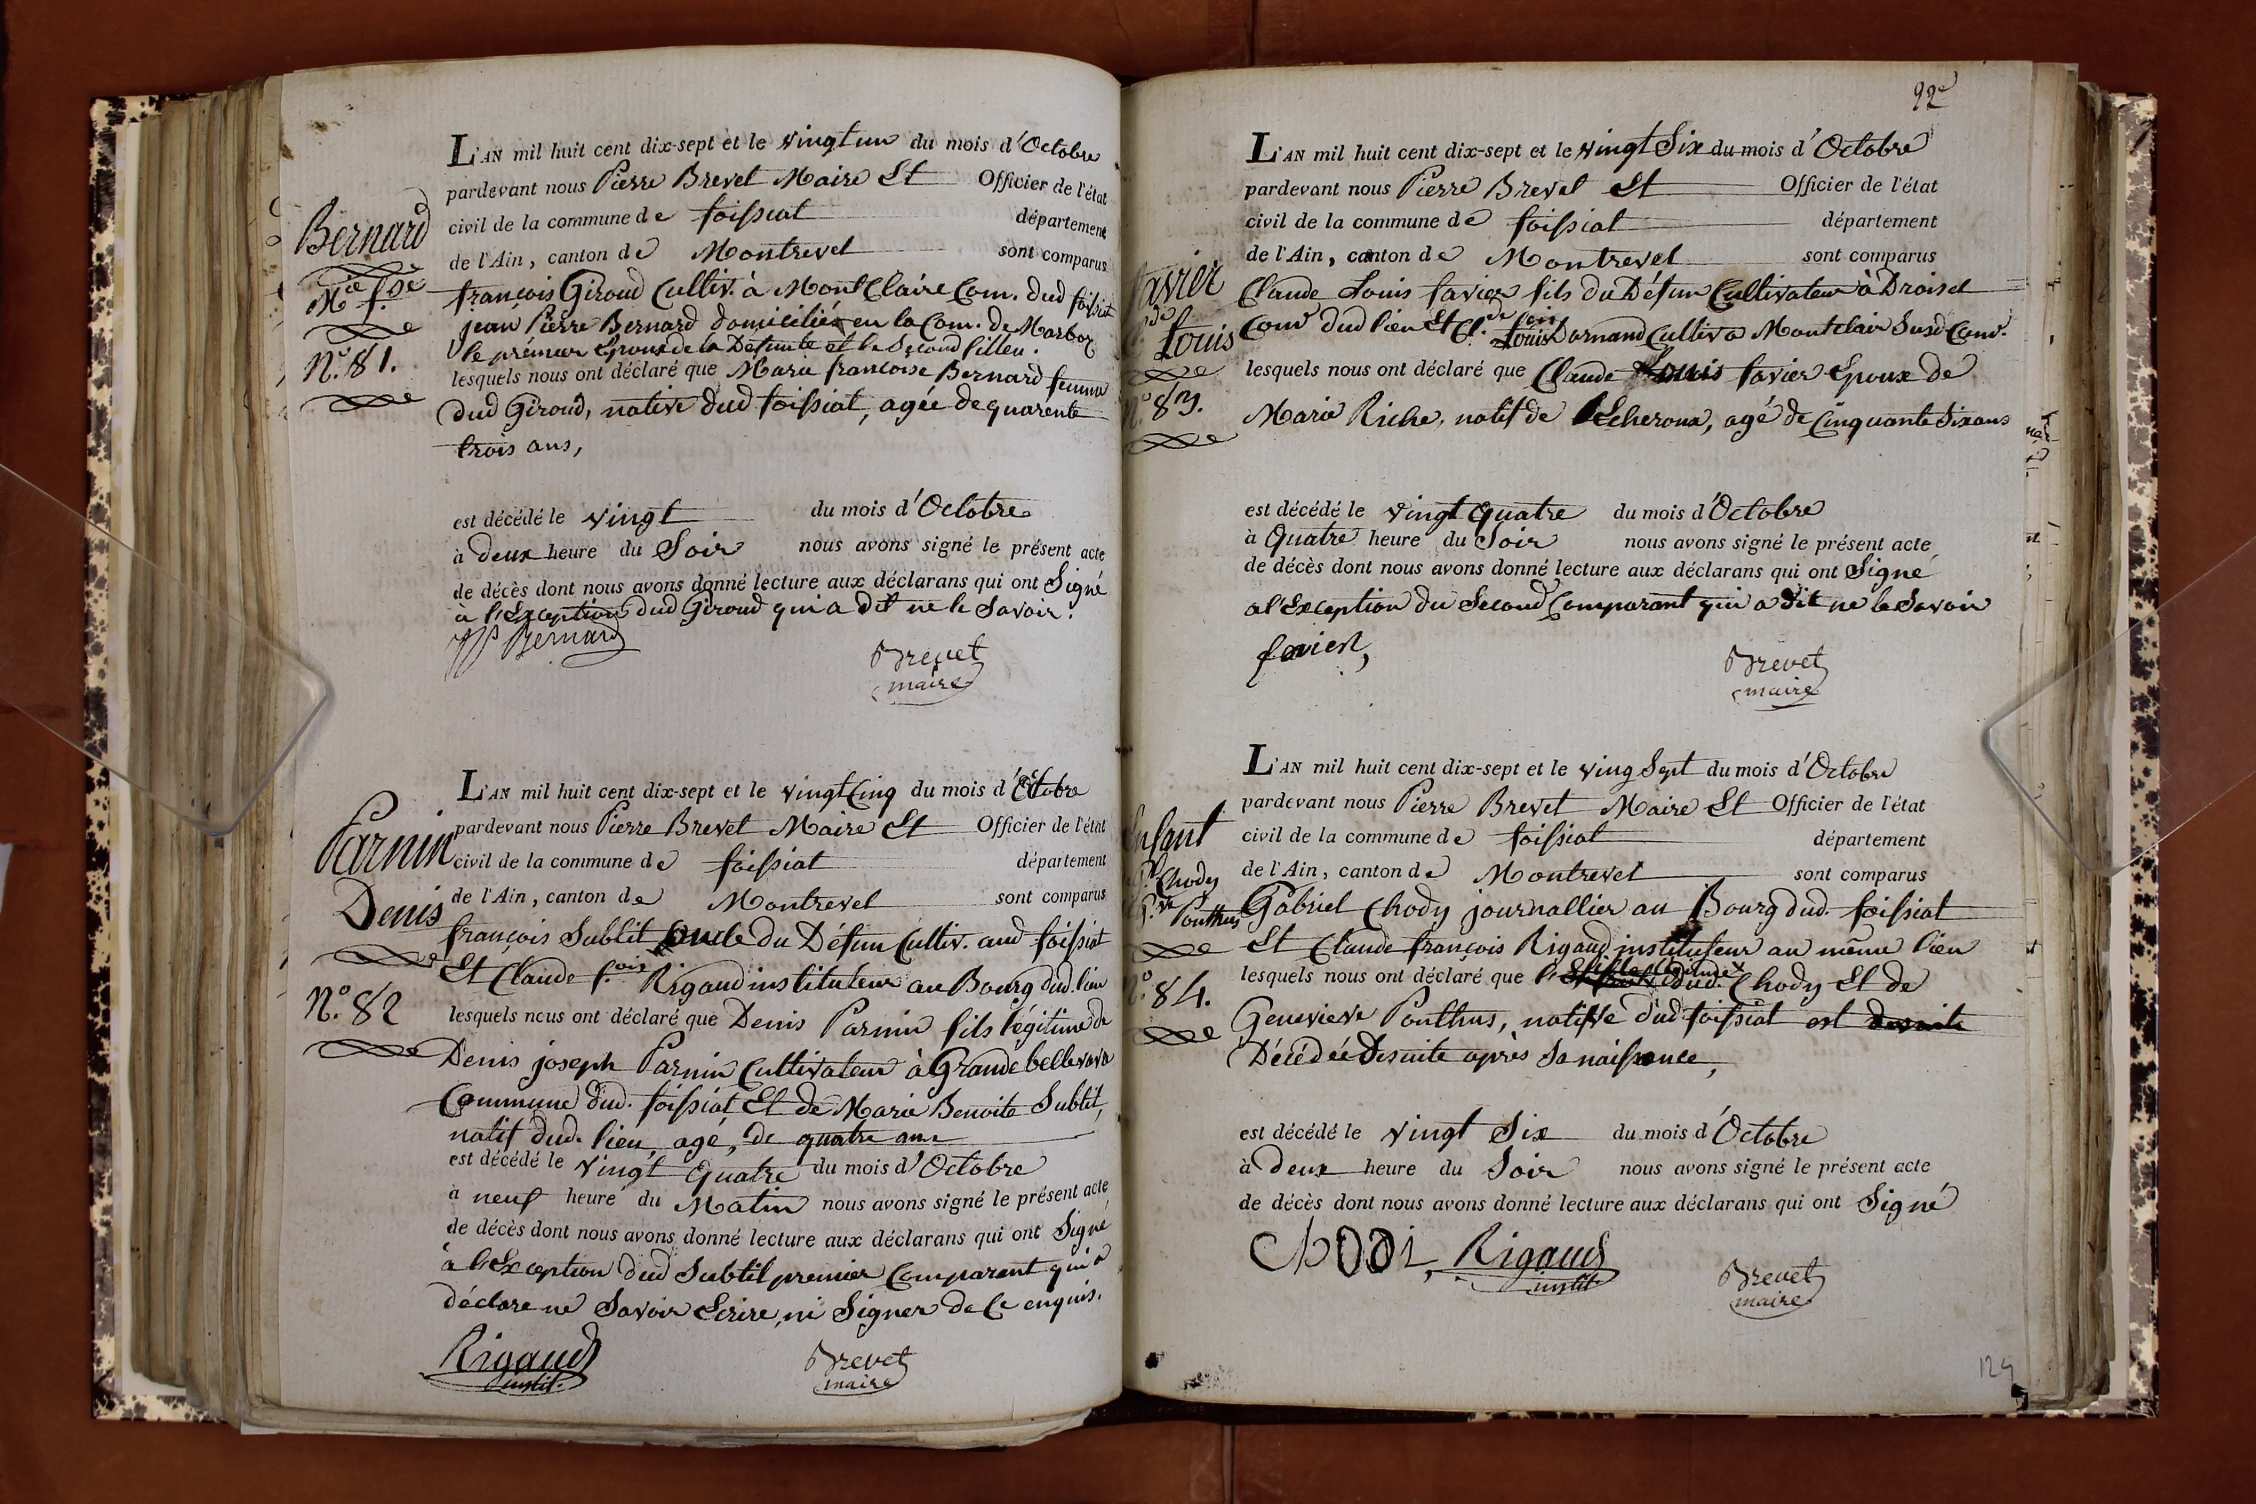 L'AN mil huit cent dix-sept et le vingt un du mois d'Octobre
pardevant nous Pierre Brevet Maire Et Officier de l'état
civil de la commune de foissiat département
de l'Ain, canton de Montrevel sont comparus
françois Giroud Cultiv. à Mont Claire Com. dud foissiat
jean Pierre Bernard domicilié en la Com. de Marboz
le prémier Epoux de la Défunte et le Second filleu.
lesquels nous ont déclaré que Marie francoise Bernard femme
dud Giroud, native dud foissiat, agée de quarente
trois ans,
est décédé le vingt du mois d'Octobre
à deux heure du Soir nous avons signé le présent acte
de décès dont nous avons donné lecture aux déclarans qui ont Signé
à l'Exception dud Giroud qui a dit ne le Savoir.
JP Bernard
Brevet
maire
Bernard
Mie fse
N.° 81.
L'AN mil huit cent dix-sept et le vingt Cinq du mois d'Octobre
pardevant nous Pierre Brevet Maire Et Officier de l'état
civil de la commune de foissiat département
de l'Ain, canton de Montrevel sont comparus
françois Sublit oncle du Défun Cultiv. aud foissiat
Et Claude f.ois Rigaud instituteur au Bourg dud. lieu
lesquels nous ont déclaré que Denis Parnin fils légitime de
Denis joseph Parnin Cultivateur à Grande bellevava
Commune dud. foissiat Et de Marie Benoite Sublit,
natif dud. lieu, agé, de quatre ans
est décédé le vingt Quatre du mois d'Octobre
à neuf heure du Matin nous avons signé le présent acte
de décès dont nous avons donné lecture aux déclarans qui ont Signé
à l'Exception dud Subtil premier Comparent qui a
déclare ne Savoir Ecrire, ni Signer de Ce enquis.
Rigaud
instit.
Brevet
maire
Parnin
Denis
N.° 82
92e
L'AN mil huit cent dix-sept et le vingt Six du mois d'Octobre
pardevant nous Pierre Brevet Et Officier de l'état
civil de la commune de foissiat département
de l'Ain, canton de Montrevel sont comparus
Claude Louis favier fils du Défun Cultivateur à Droiset
Com dud lieu Et Cl.de fois Dornand Cultiv a Montclair Susd Com.
lesquels nous ont déclaré que Claude Louis favier Epoux de
Marie Riche, natif de Lescheroux, agé de Cinquante Six ans
est décédé le vingt Quatre du mois d'Octobre
à Quatre heure du Soir nous avons signé le présent acte
de décès dont nous avons donné lecture aux déclarans qui ont Signé
a l'Exception du Second Comparant qui a dit ne le Savoir
favier,
Brevet
maire
favier
Louis
N.° 83.
L'AN mil huit cent dix-sept et le ving Sept du mois d'Octobre
pardevant nous Pierre Brevet Maire Et Officier de l'état
civil de la commune de foissiat département
de l'Ain, canton de Montrevel sont comparus
Gabriel Chody journallier au Bourg dud. foissiat
Et Claude françois Rigaud instituteur au même lieu
lesquels nous ont déclaré que dud. Chody Et de
Genevieve Ponthus, native dud foissiat est
Décédée Desuite après Sa naissance,
est décédé le vingt Six du mois d'Octobre
à deux heure du Soir nous avons signé le présent acte
de décès dont nous avons donné lecture aux déclarans qui ont Signé
Chodi, Rigaud
instit.
Brevet
maire
Enfant
Chody
Ponthus
N.° 84.
124